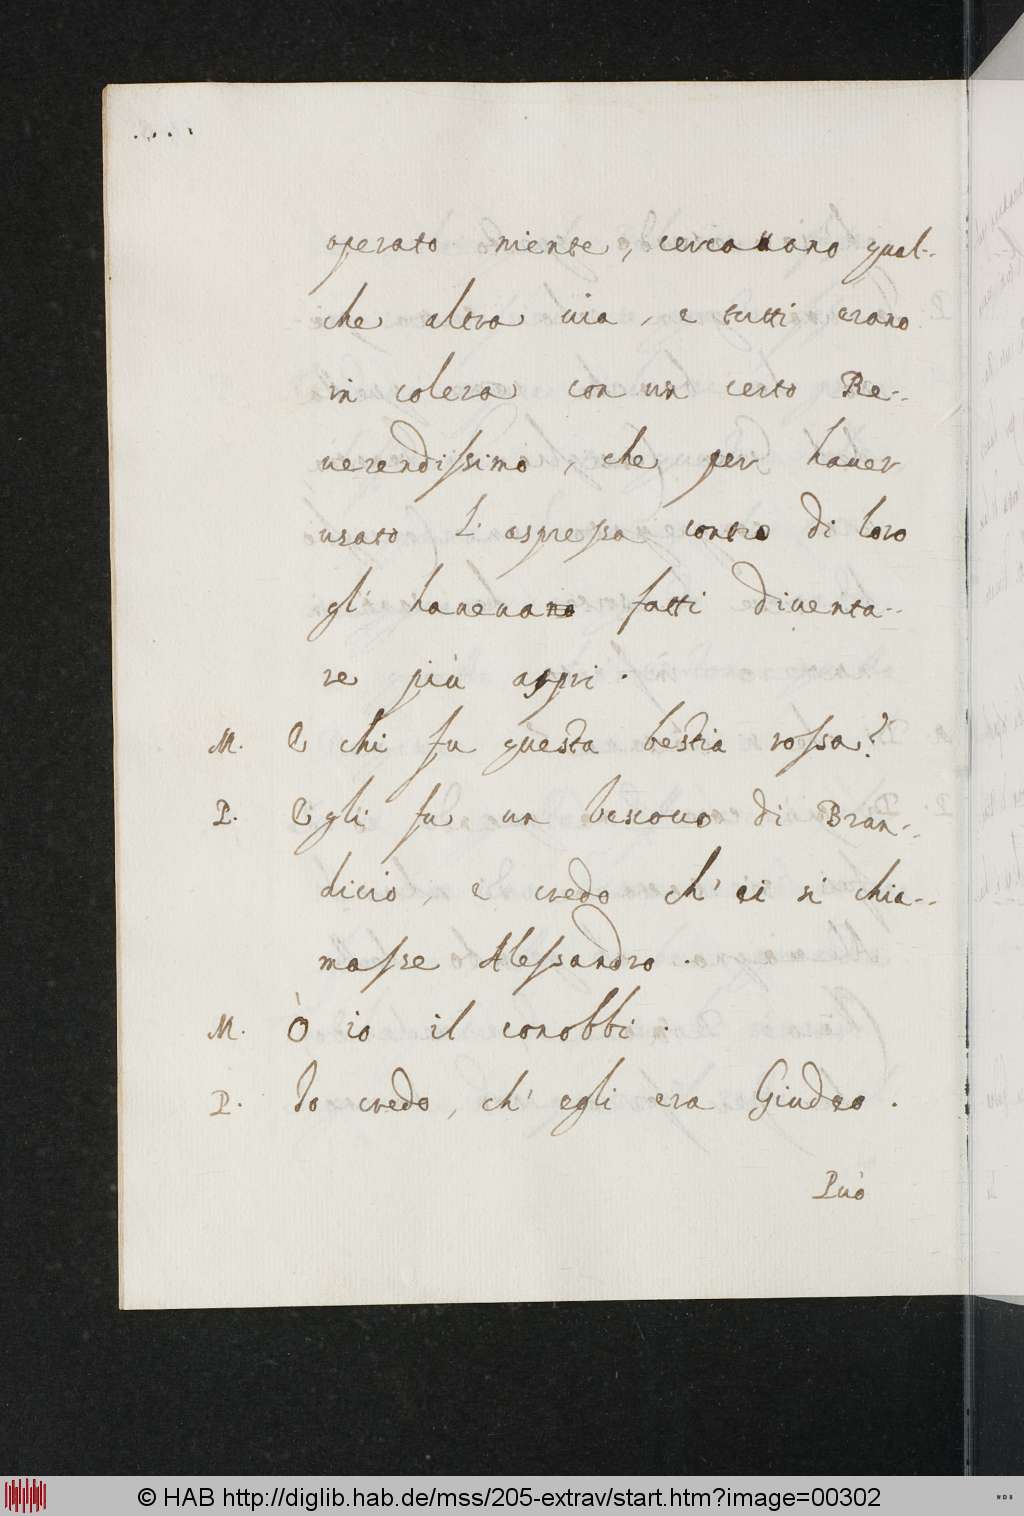 operato niente, cercauano qual-
che altra uia, e tutti erano
in colera con un certo Re-
uerendissimo, che per hauer
usato l'aspressa contra di loro
gli haueuano fatti diuenta-
re più aspri.
M. E chi fu questa bestia rossa?
P. Egli fu un bescouo di Bran-
dicio, e credo ch' ei si chia-
masse Alessandro.
M. Ò io il conobbi.
P. Io credo, ch' egli era Giudeo.
Può
© HAB http://diglib.hab.de/mss/205-extrav/start.htm?image=00302